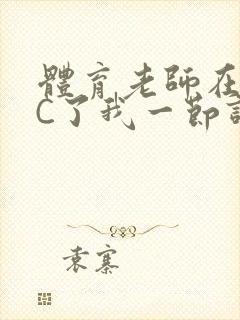 體育老師在
C了我一節
袁寨